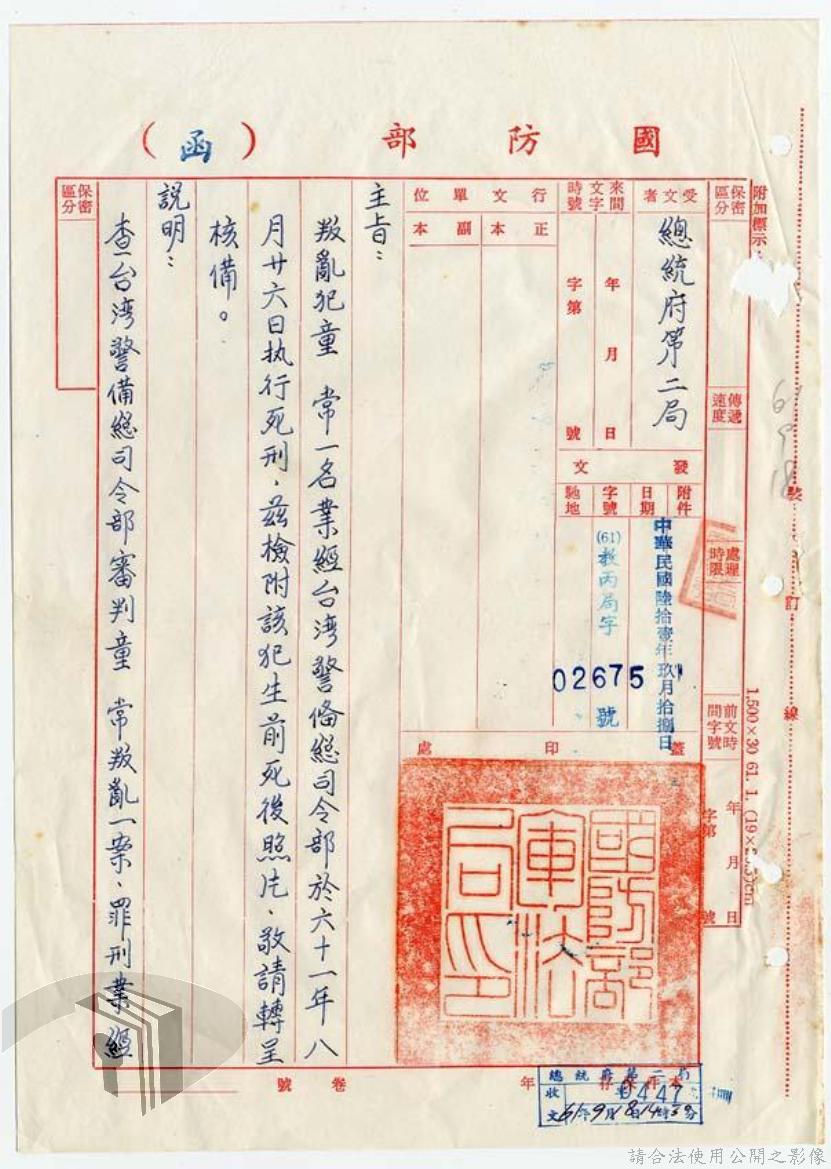 國防部（函）
附加標示：
保密區分
傳遞速度
處理時限
前文時間字號
年 月 日
字第 號
受文者
總統府第二局
來文時間字號
年 月 日
字第 號
發文
附件
日期
中華民國陸拾壹年玖月拾捌日
字號
(61)教丙局字
02675號
馳地
行文單位
正本
副本
蓋印處
國防部軍法局印
主旨：
叛亂犯童 常一名業經台湾警俻總司令部於六十一年八
月廿六日执行死刑，茲檢附該犯生前死後照片，敬請轉呈
核備。
說明：
查台湾警備總司令部審判童 常叛亂一案，罪刑業經
保密區分
裝
訂
線
61
9
18
1,500×30 61. 1.
年
卷
號
總統府第二局
收文
0447
61年9月18日14時
請合法使用公開之影像